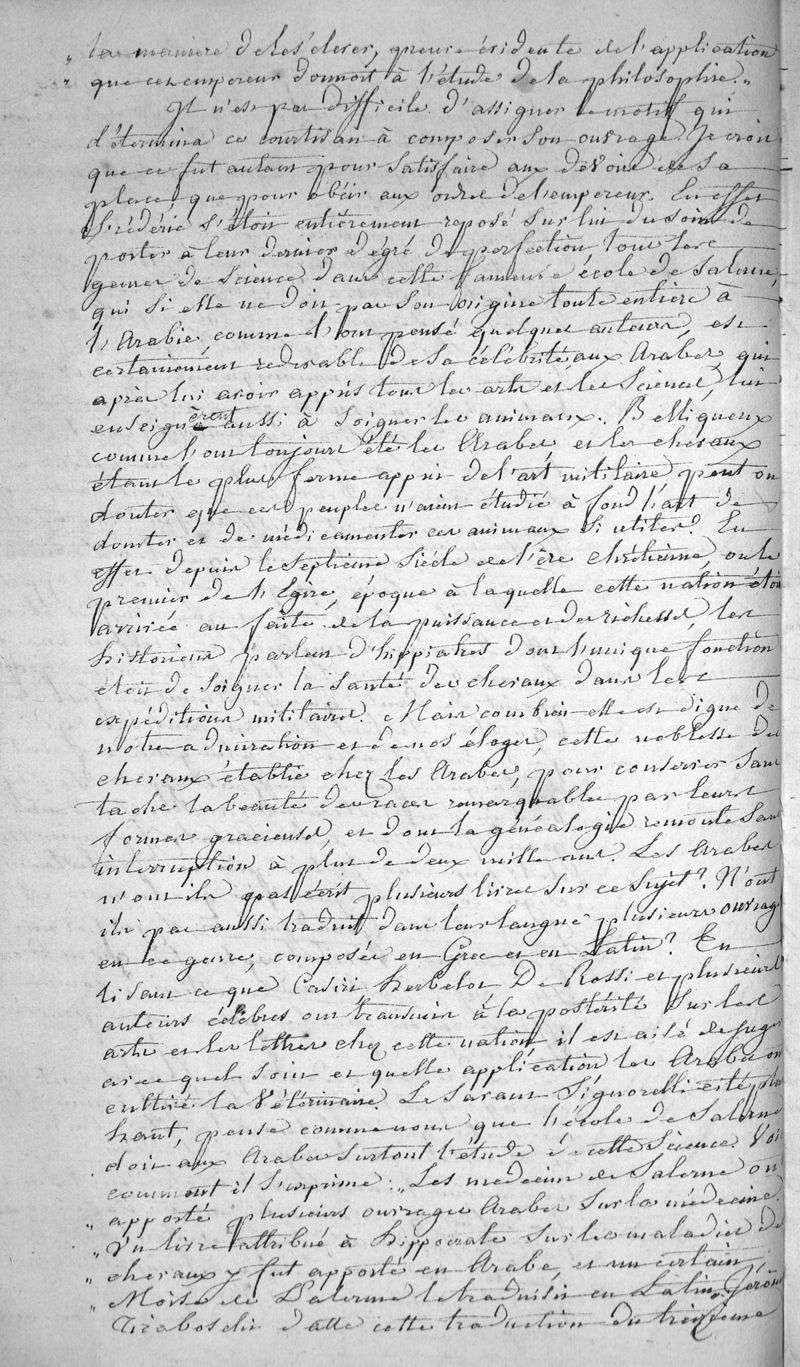 „ la manière de les élever, preuve évidente de l'application
„ que cet empereur donnoit à l'étude de la philosophie.„
Il n'est pas difficile d'assigner le motif qui
détermina ce courtisan à composer son ouvrage. Je crois
que ce fut autant pour satisfaire aux devoirs de sa
place, que pour obéir aux ordres de l'empereur. En effet
Frédéric s'étoit entièrement reposé sur lui du soin de
porter à leur dernier dégré de perfection tous les
genres de science dans cette fameuse école de Salerne,
qui si elle ne doit pas son origine toute entière à
l'Arabie, comme l'ont pensé quelques auteurs, est
certainement redevable de sa célébrité aux Arabes, qui
après lui avoir appris tous les arts et les sciences, lui
enseignèrent aussi à soigner les animaux. Belliqueux
comme l'ont toujours été les Arabes, et les chevaux
étant le plus ferme appui de l'art militaire, peut on
douter que ces peuples n'aient étudié à fond l'art de
domter et de médicamenter ces animaux si utiles? En
effet depuis le septième siécle de l'ère chrétienne, ou le
premier de l'Egire, époque à laquelle cette nation étoit
arrivée au faîte de la puissance et des richesses, les
historiens parlent d'hippiatres dont l'unique fonction
étoit de soigner la santé des chevaux dans les
expéditions militaires. Mais combien elle est digne de
notre admiration et de nos éloges, cette noblesse de
chevaux établie chez les Arabes, pour conserver sans
tache la beauté des races remarquables par leurs
formes gracieuses, et dont la généalogie remonte sans
interruption à plus de deux mille ans. Les Arabes
n'ont ils pas écrit plusieurs livres sur ce sujet? N'ont
ils pas aussi traduit dans leur langue plusieurs ouvrages
en ce genre, composés en Grec et en Latin? En
lisant ce que Casiri herbelot De Rossi et plusieurs
auteurs célèbres ont transmis à la postérité sur les
arts et les lettres chez cette nation, il est aisé de juger
avec quel soin et quelle application les Arabes ont
cultivé la Vétérinaire. Le savant Signorelli cité plus
haut, pense comme nous que l'école de Salerne
doit aux Arabes surtout l'étude de cette science. Voici
comment il s'exprime: „Les médecins de Salerne ont
„ apporté plusieurs ouvrages Arabes sur la médecine.
„ Un livre attribué à hippocrate sur les maladies des
„ chevaux y fut apporté en Arabe, et un certain
„ Moïse de Palerme le traduisit en Latin. Jérôme
Tiraboschi date cette traduction du treizième